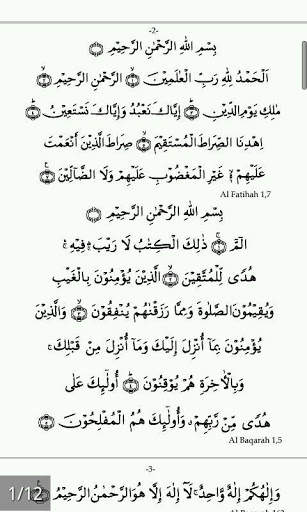 -2-
بِسْمِ اللهِ الرَّحْمٰنِ الرَّحِيْمِ ۝
اَلْحَمْدُ لِلّٰهِ رَبِّ الْعٰلَمِيْنَ ۝ الرَّحْمٰنِ الرَّحِيْمِ ۝
مٰلِكِ يَوْمِ الدِّيْنِ ۝ اِيَّاكَ نَعْبُدُ وَاِيَّاكَ نَسْتَعِيْنُ ۝
اِهْدِنَا الصِّرَاطَ الْمُسْتَقِيْمَ ۝ صِرَاطَ الَّذِيْنَ أَنْعَمْتَ
عَلَيْهِمْ ۙ غَيْرِ الْمَغْضُوْبِ عَلَيْهِمْ وَلَا الضَّآلِّيْنَ ۝
Al Fatihah 1,7
بِسْمِ اللهِ الرَّحْمٰنِ الرَّحِيْمِ ۝
الٓمّٓ ۝ ذٰلِكَ الْكِتٰبُ لَا رَيْبَ ۛ فِيْهِ ۛ
هُدًى لِّلْمُتَّقِيْنَ ۝ الَّذِيْنَ يُؤْمِنُوْنَ بِالْغَيْبِ
وَيُقِيْمُوْنَ الصَّلٰوةَ وَمِمَّا رَزَقْنٰهُمْ يُنْفِقُوْنَ ۝ وَالَّذِيْنَ
يُؤْمِنُوْنَ بِمَآ اُنْزِلَ اِلَيْكَ وَمَآ اُنْزِلَ مِنْ قَبْلِكَ ۚ
وَبِالْاٰخِرَةِ هُمْ يُوْقِنُوْنَ ۝ أُولٰٓئِكَ عَلٰى
هُدًى مِّنْ رَّبِّهِمْ ۙ وَأُولٰٓئِكَ هُمُ الْمُفْلِحُوْنَ ۝
Al Baqarah 1,5
-3-
وَاِلٰهُكُمْ اِلٰهٌ وَّاحِدٌ ۚ لَآ اِلٰهَ اِلَّا هُوَ الرَّحْمٰنُ الرَّحِيْمُ ۝
1/12